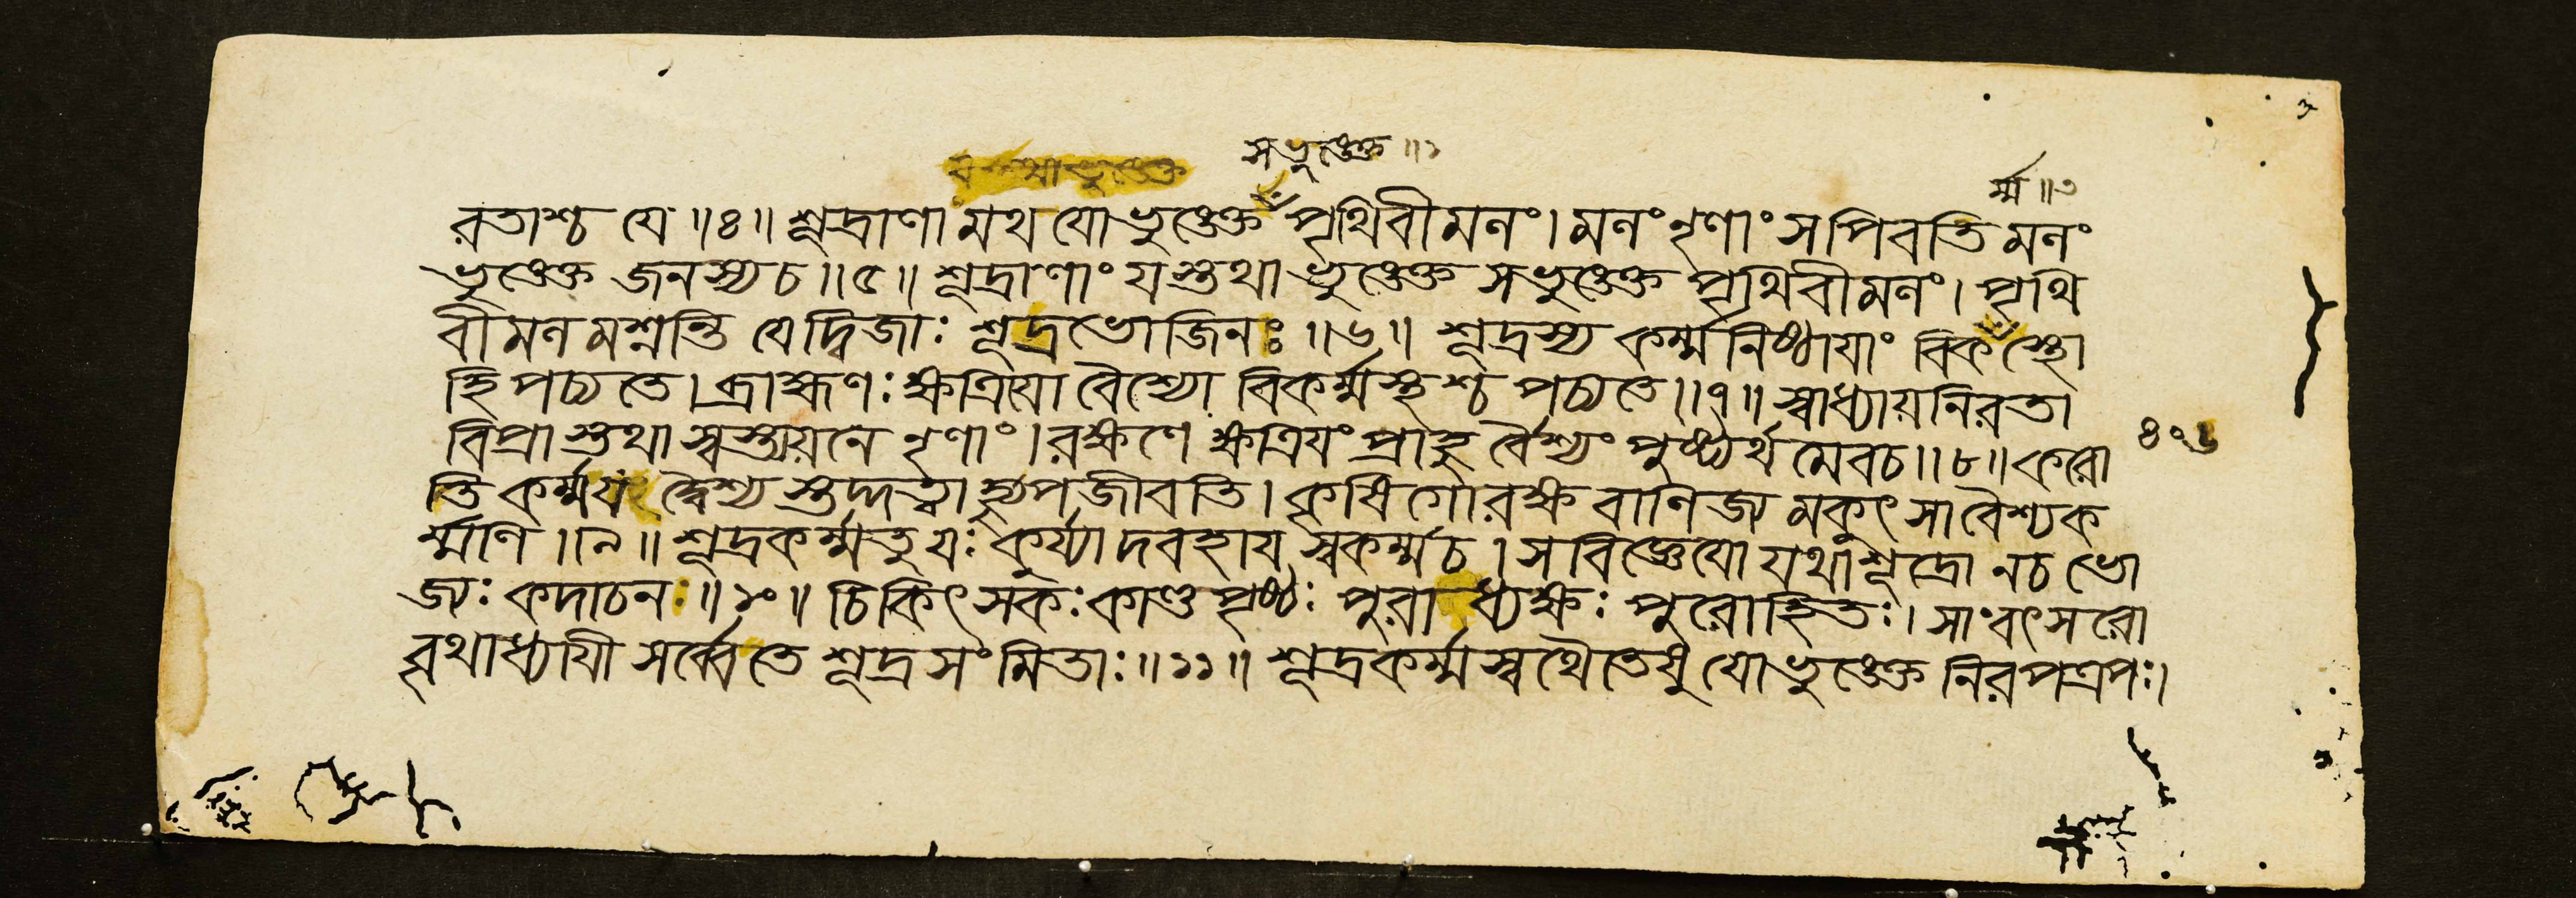 সভুঙেক্ত ॥১
র্ম্ম ॥৩
রতাশ্চ যে ॥৪॥ শূদ্রাণামথ যো ভুঙেক্ত পৃথিবীমলং। মলং নৃণাং স পিবতি মলং
ভুঙেক্ত জনস্য চ ॥৫॥ শূদ্রাণাং যস্তথা ভুঙেক্ত স ভুঙেক্ত পৃথিবীমলং। পৃথি
বীমলমশ্নন্তি যে দ্বিজাঃ শূদ্রভোজিনঃ ॥৬॥ শূদ্রস্য কর্ম্মনিষ্ঠায়াং বিকস্থো
হি পচ্যতে। ব্রাহ্মণঃ ক্ষত্রিয়ো বৈশ্যো বিকর্ম্মস্থশ্চ পচ্যতে ॥৭॥ স্বাধ্যায়নিরতা
বিপ্রাস্তথা স্বস্ত্যয়নে নৃণাং। রক্ষণে ক্ষত্রিয়ং প্রাহুর্বৈশ্যং পুষ্ট্যর্থমেব চ ॥৮॥ করো
৪০৬
তি কর্ম্ম যদ্বৈশ্যস্তদ্দত্বা হ্যুপজীবতি। কৃষিগোরক্ষবাণিজ্যমকুৎসা বৈশ্যক
র্ম্মণি ॥৯॥ শূদ্রকর্ম্ম তু যঃ কুর্য্যাদবহায় স্বকর্ম্ম চ। স বিজ্ঞেয়ো যথা শূদ্রো ন চ ভো
জ্যঃ কদাচনঃ ॥১০॥ চিকিৎসকঃ কাণ্ডপৃষ্ঠঃ পুরাধ্যক্ষঃ পুরোহিতঃ। সাংবৎসরো
বৃথাধ্যায়ী সর্ব্বে তে শূদ্রসংমিতাঃ ॥১১॥ শূদ্রকর্ম্মস্বথৈতেষু যো ভুঙেক্ত নিরপত্রপঃ।